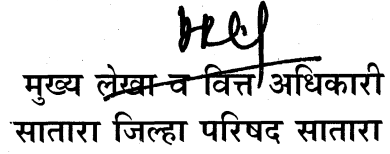 मुख्य लेखा व वित्त अधिकारी
सातारा जिल्हा परिषद सातारा